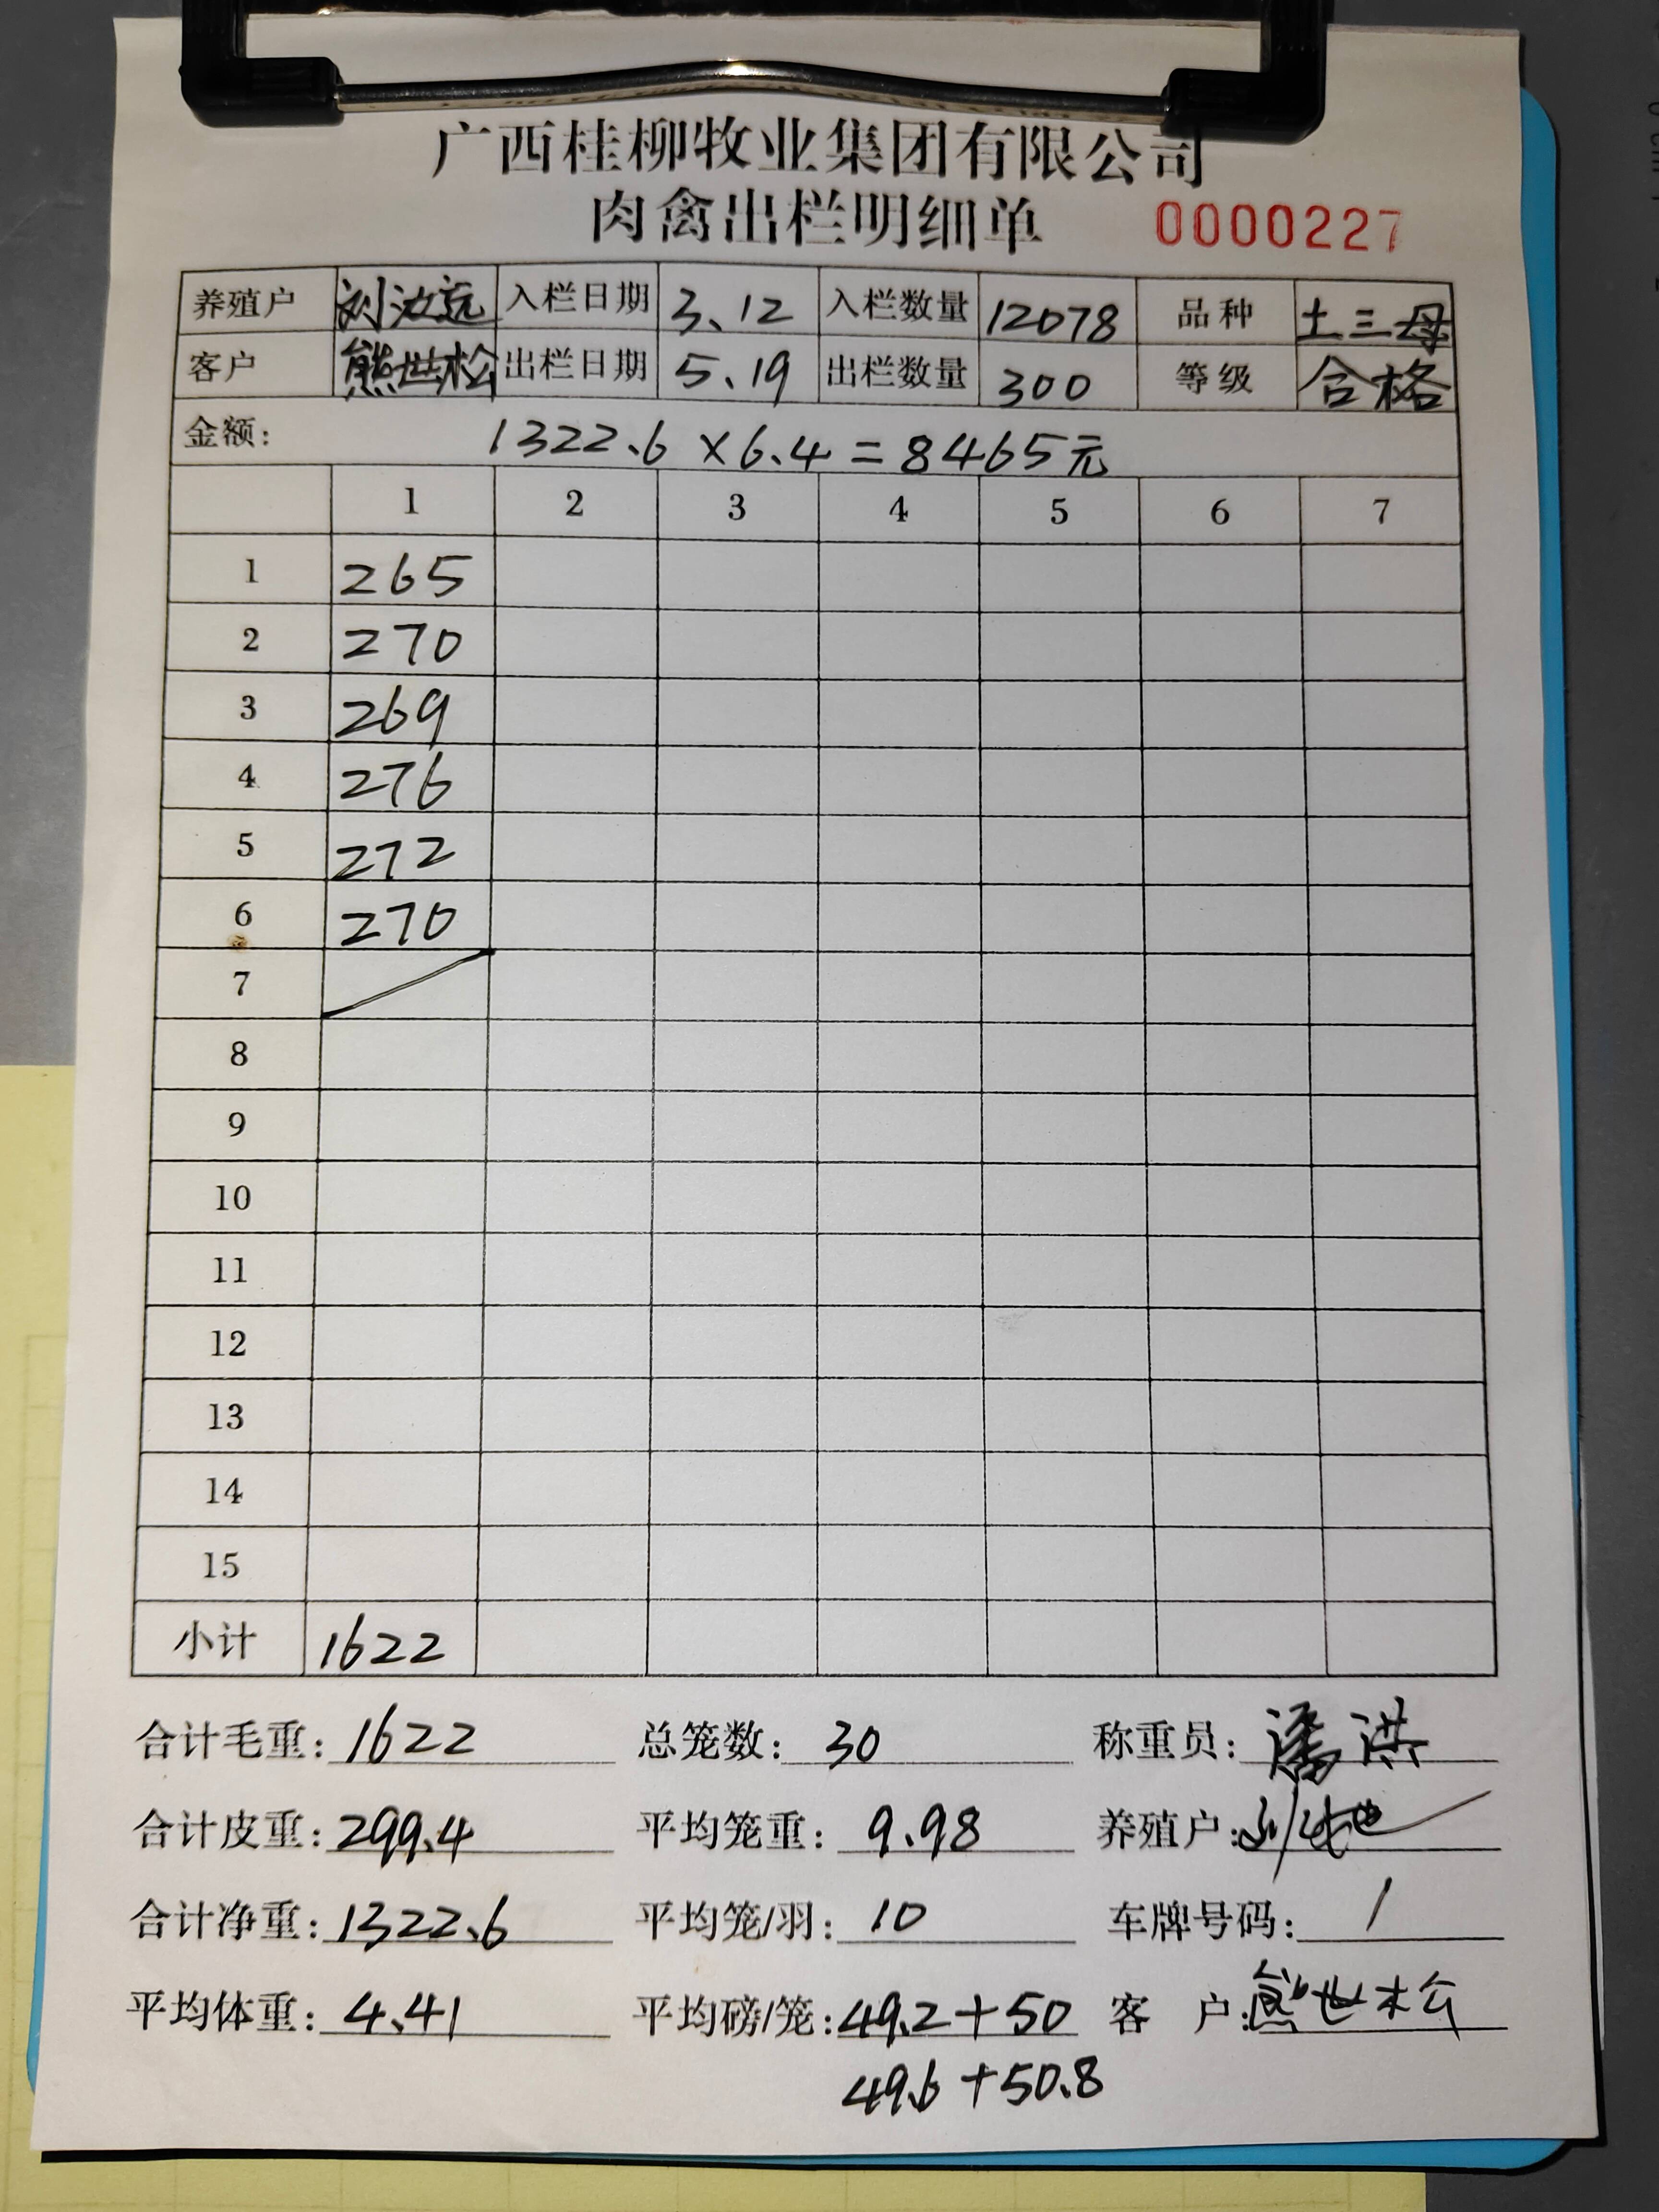 广西桂柳牧业集团有限公司
肉禽出栏明细单 0000227
养殖户 刘 远 入栏日期 3.12 入栏数量 12078 品种 土三母
客户 熊世松 出栏日期 5.19 出栏数量 300 等级 合格
金额: 1322.6×6.4=8465元
1 2 3 4 5 6 7
1 265
2 270
3 269
4 276
5 272
6 270
7
8
9
10
11
12
13
14
15
小计 1622
合计毛重: 1622 总笼数: 30 称重员: 潘洪
合计皮重: 299.4 平均笼重: 9.98 养殖户:
合计净重: 1322.6 平均笼/羽: 10 车牌号码: /
平均体重: 4.41 平均磅/笼: 49.2+50 客 户: 熊世松
49.6+50.8